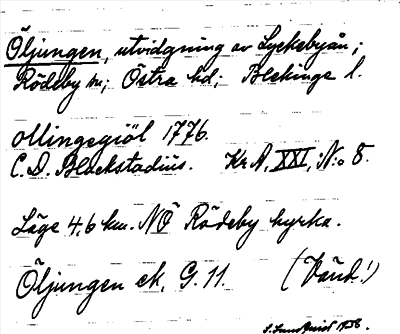 Öljungen, utvidgning av Lyckebyån;
Rödeby sn; Östra hd; Blekinge l.
Ollingegiöl 1776.
C. D. Blackstadius. Kr. A. XXI, N:o 8.
Läge 4,6 km. NÖ Rödeby kyrka.
Öljungen ek. G. 11. (Vänd!)
S. Lundqvist 1938.